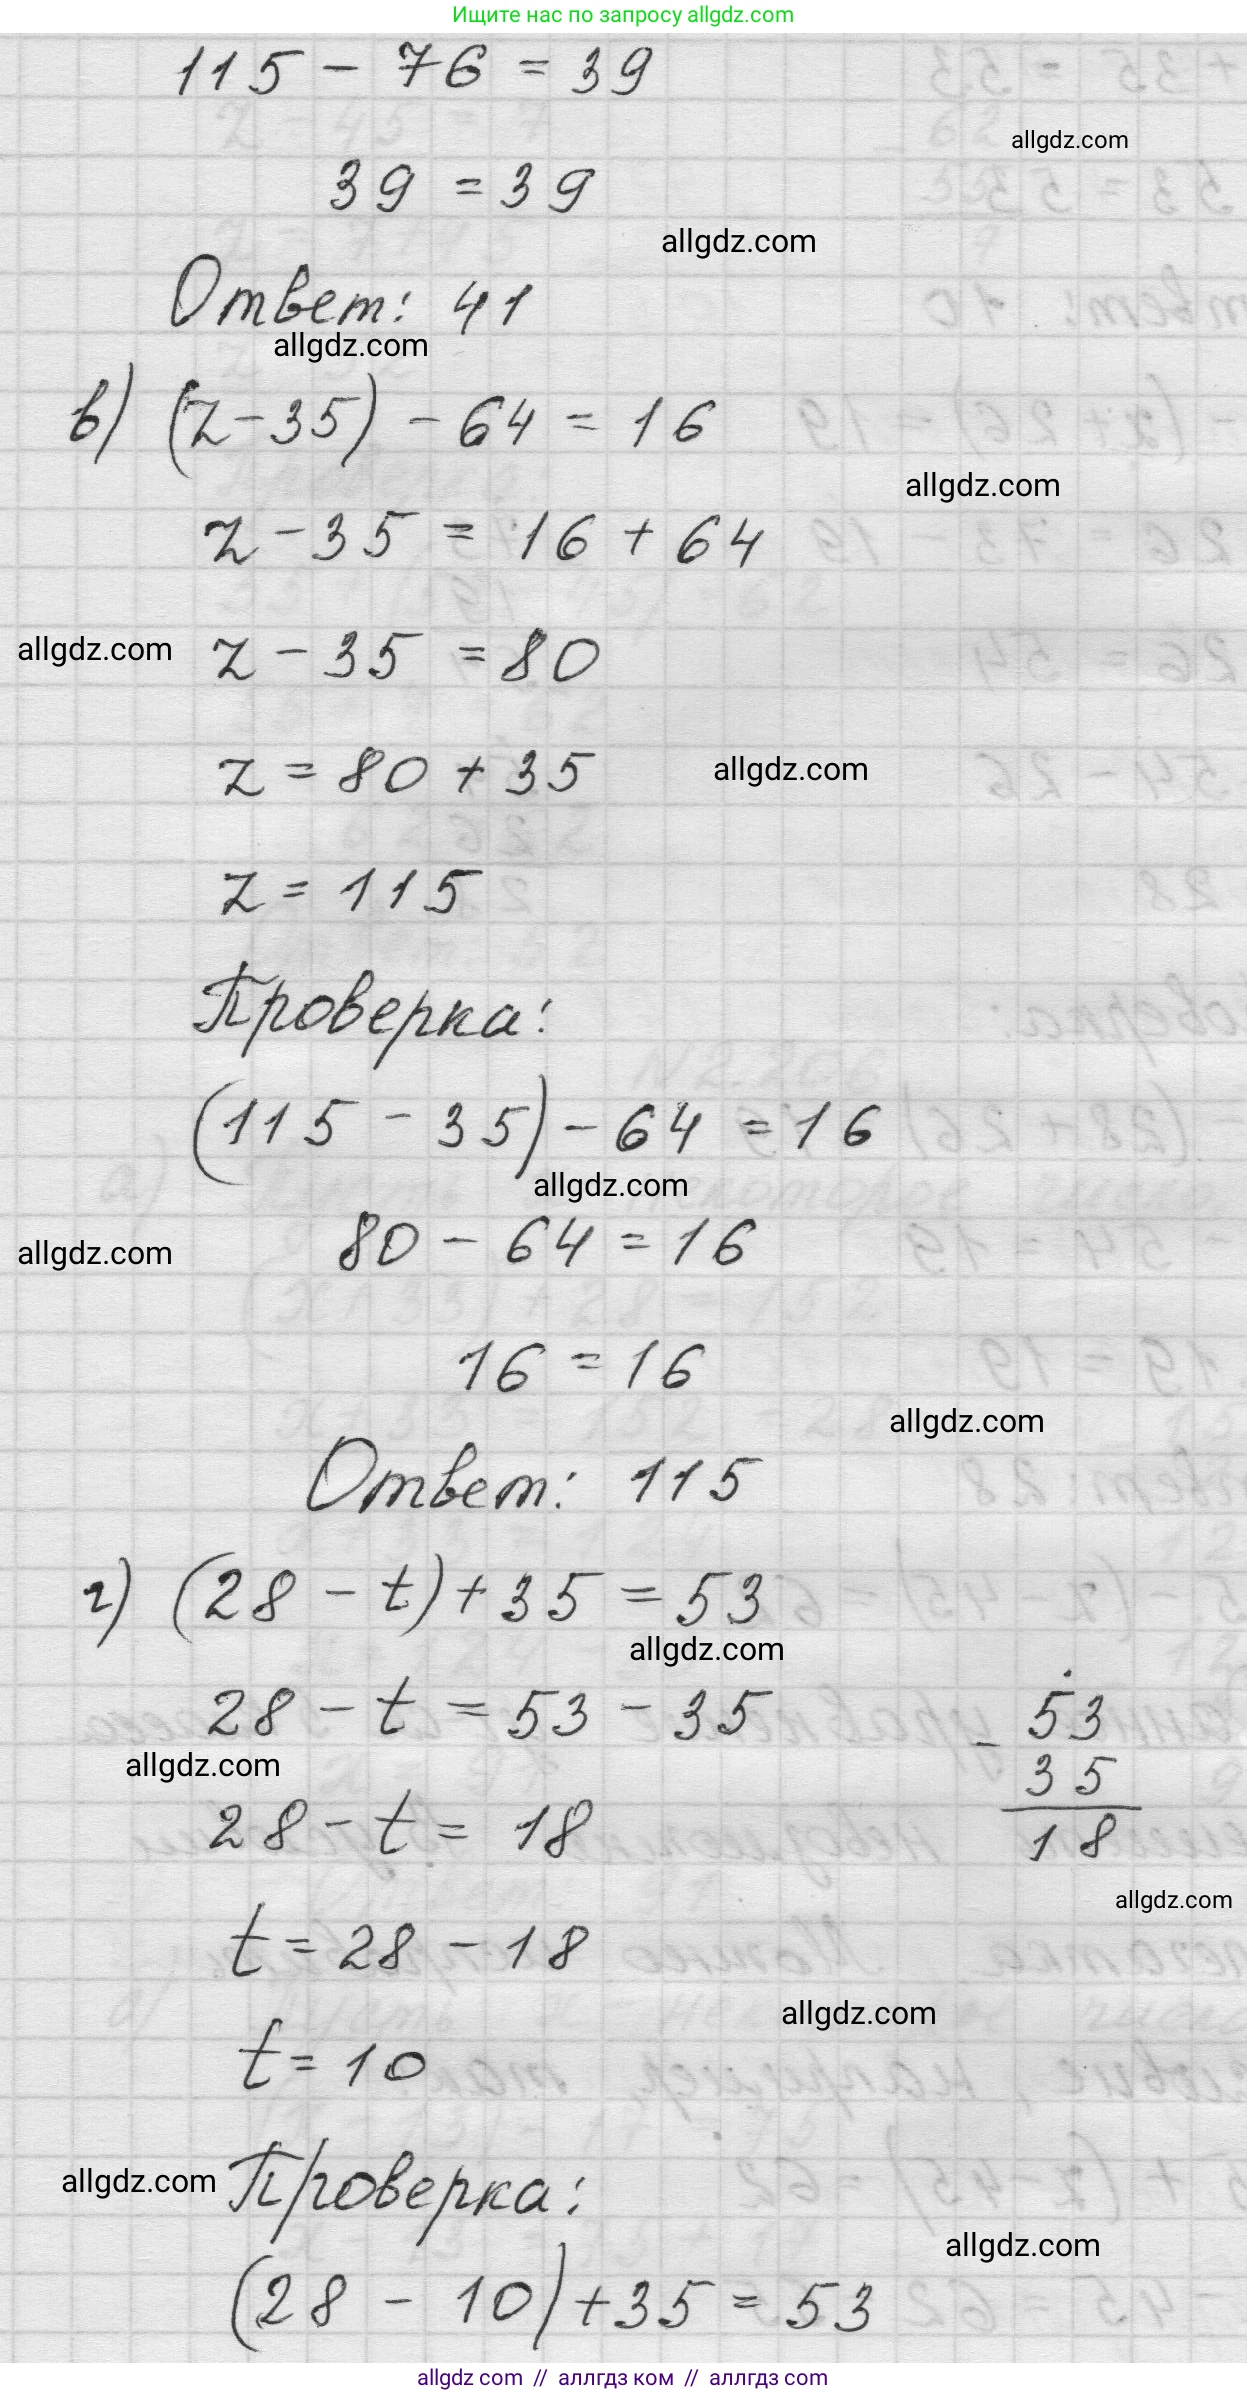 Ищите нас по запросу allgdz.com
115 - 76 = 39
allgdz.com
39 = 39
allgdz.com
Ответ: 41
allgdz.com
в) (z - 35) - 64 = 16
allgdz.com
z - 35 = 16 + 64
allgdz.com z - 35 = 80
z = 80 + 35 allgdz.com
z = 115
Проверка:
(115 - 35) - 64 = 16
allgdz.com
allgdz.com 80 - 64 = 16
16 = 16
allgdz.com
Ответ: 115
г) (28 - t) + 35 = 53
allgdz.com
28 - t = 53 - 35
- 53
35
18
allgdz.com
28 - t = 18
allgdz.com
t = 28 - 18
allgdz.com
t = 10
allgdz.com Проверка:
allgdz.com
(28 - 10) + 35 = 53
allgdz com // аллгдз ком // аллгдз com